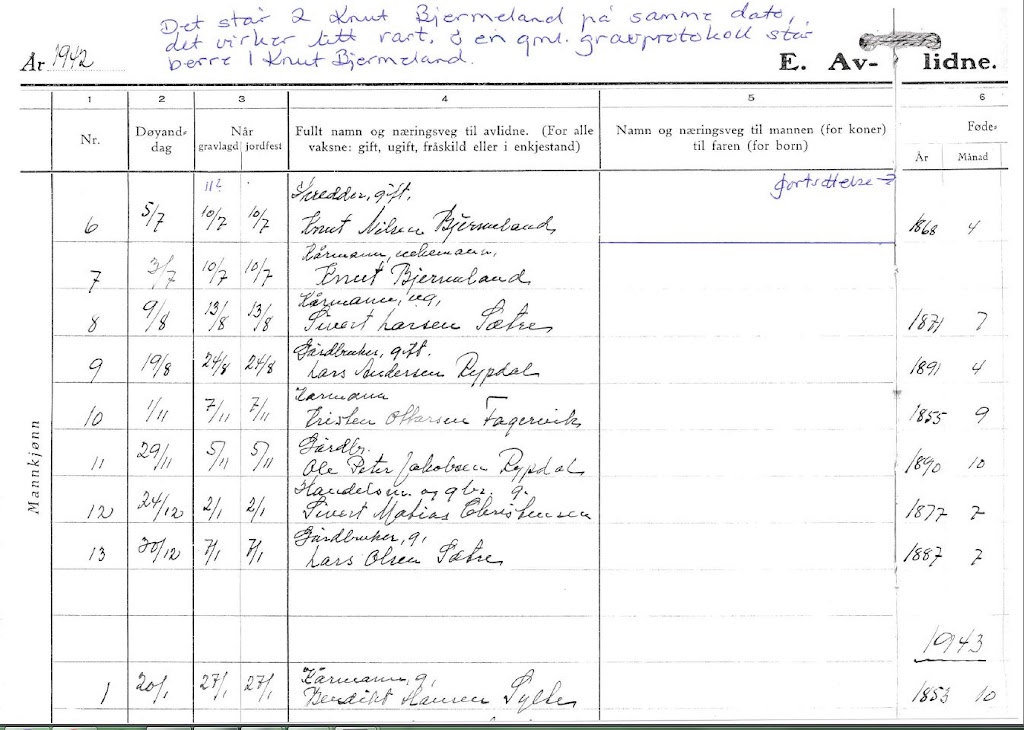 Det står 2 Knut Bjermeland på samme dato,
det virker litt rart, i en gml. gravprotokoll står
berre 1 Knut Bjermeland.
År 1942 E. Av- lidne.
1 2 3 4 5 6
Nr. Døyand-dag Når gravlagd jordfest Fullt namn og næringsveg til avlidne. (For alle vaksne: gift, ugift, fråskild eller i enkjestand) Namn og næringsveg til mannen (for koner) til faren (for born) Føde- År Månad
fortsettelse →
Mannkjønn
Skredder, gift.
6 5/7 10/7 10/7 Knut Nilsen Bjermeland 1868 4
Kårmann, enkemann,
7 3/7 10/7 10/7 Knut Bjermeland
Kårmann, ug,
8 9/8 13/8 13/8 Sivert Larsen Sætre 1871 7
Gårdbruker, gift.
9 19/8 24/8 24/8 Lars Andersen Rypdal 1891 4
Kårmann
10 1/11 7/11 7/11 Kristen Ottarsen Fagervik 1855 9
Gårdbr.
11 29/11 5/11 5/11 Ole Peter Jakobsen Rypdal 1890 10
Handelsm. og gbr. g.
12 24/12 2/1 2/1 Sivert Matias Christensen 1877 2
Gårdbruker, g,
13 30/12 7/1 7/1 Lars Olsen Sætre 1887 2
1943
Kårmann, g,
1 20/1 27/1 27/1 Bendikt Hansen Sylte 1853 10